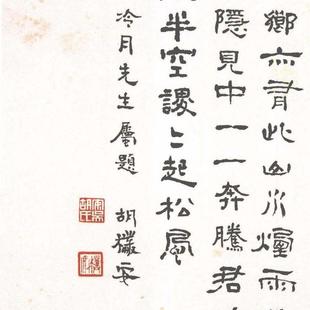 鄉亦有此山水煙雨
隱見中一一奔騰君
半空謖〻起松風
冷月先生屬題 胡樸安